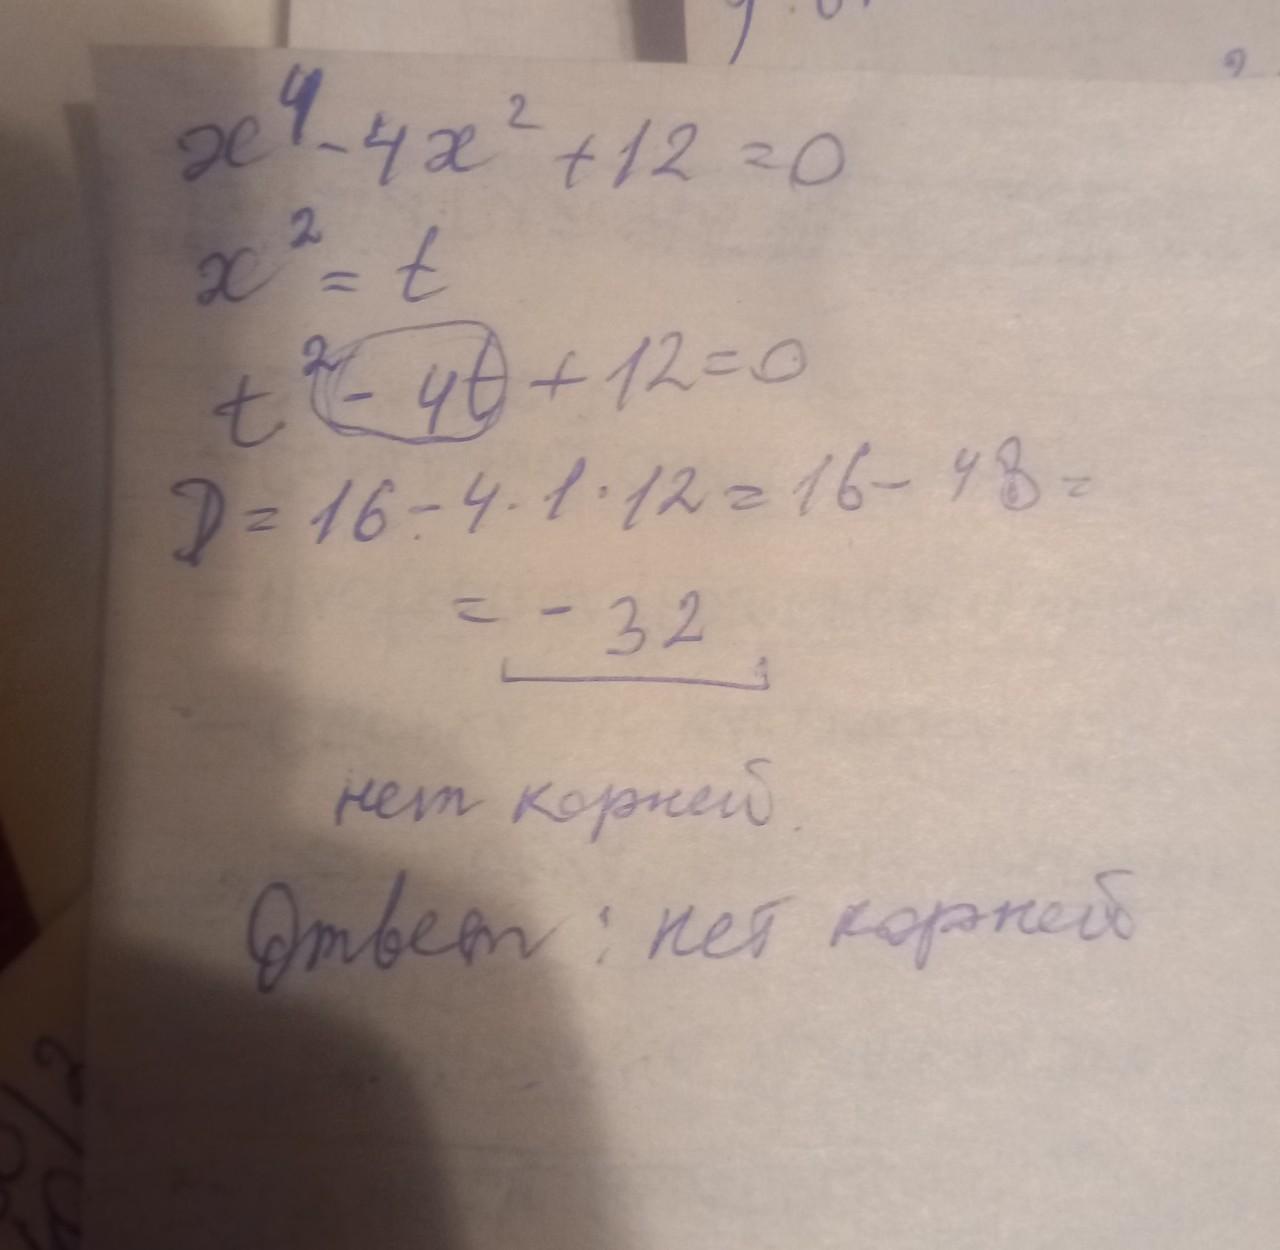 x⁴ - 4x² + 12 = 0
x² = t
t² - 4t + 12 = 0
D = 16 - 4 · 1 · 12 = 16 - 48 =
= - 32
нет корней.
Ответ : нет корней